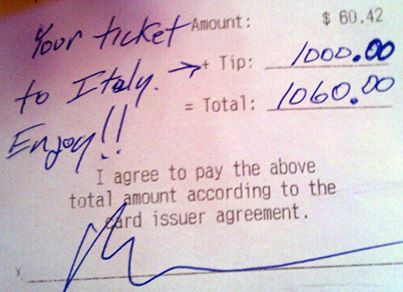 Your ticket
to Italy. →
Enjoy!!
Amount: $ 60.42
+ Tip: 1000.00
= Total: 1060.00
I agree to pay the above
total amount according to the
card issuer agreement.
x